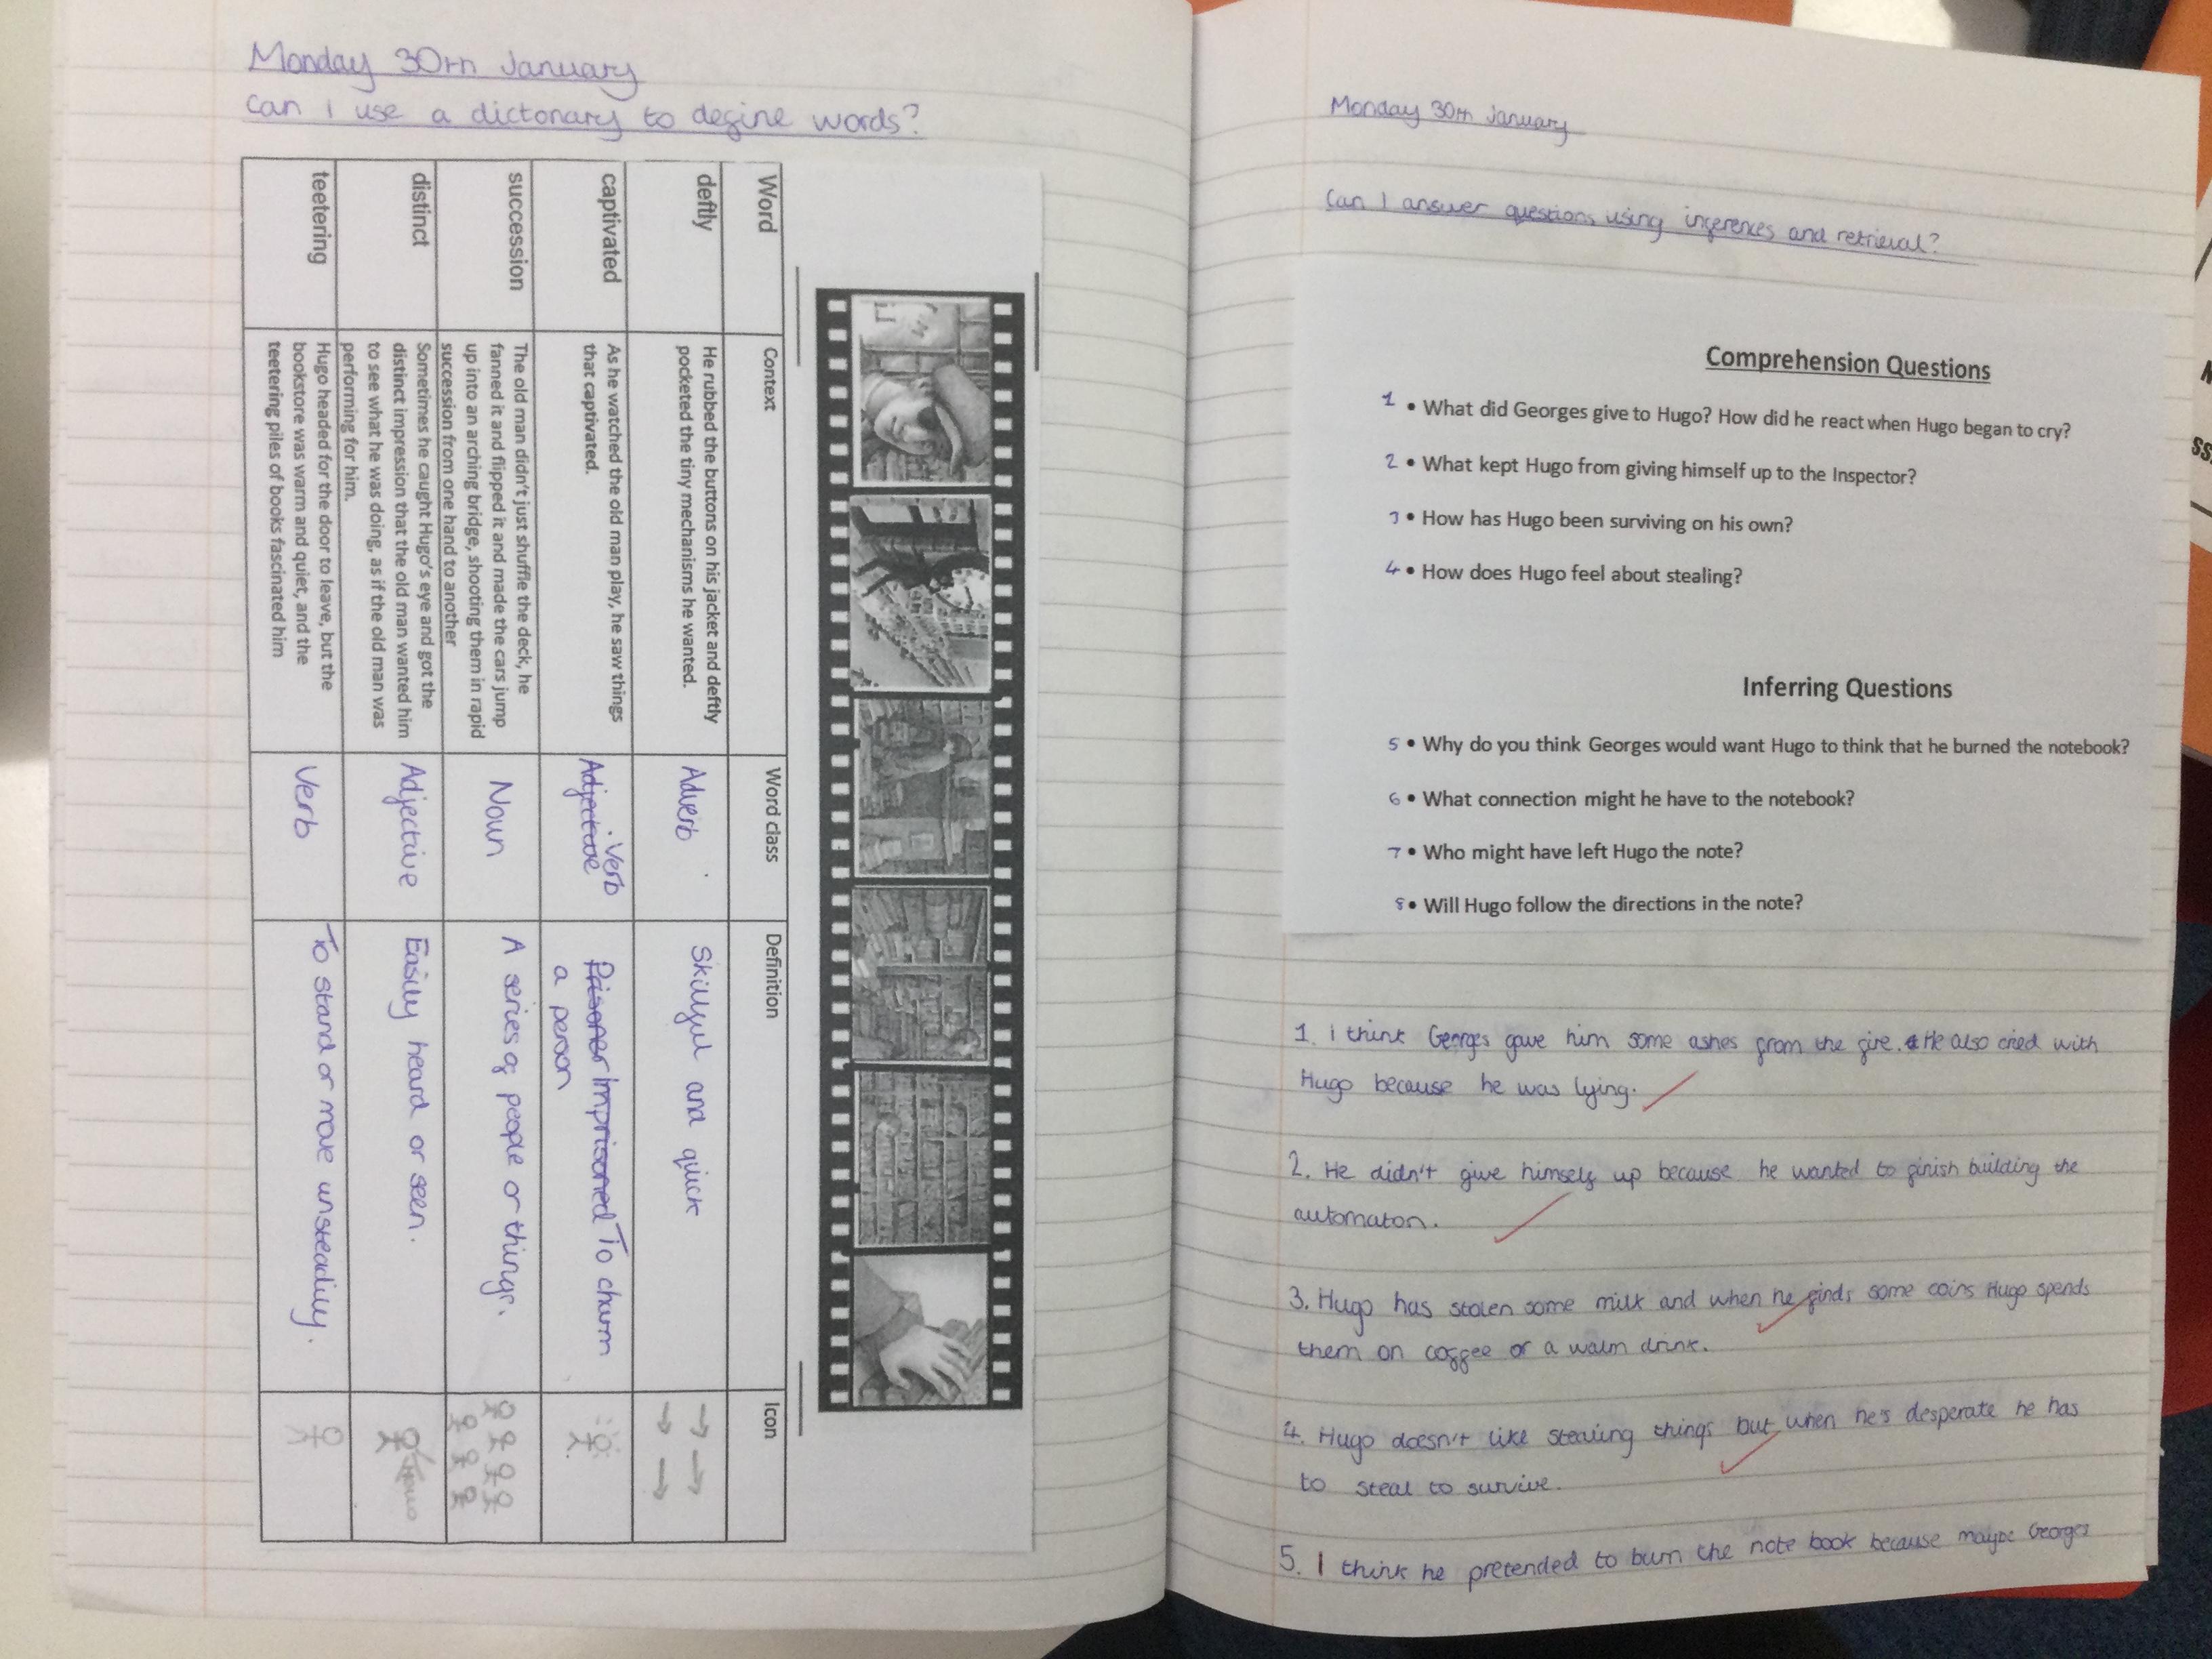 Monday 30th January
Can I use a dictonary to define words?
Word
Context
Word class
Definition
Icon
deftly
He rubbed the buttons on his jacket and deftly
pocketed the tiny mechanisms he wanted.
Adverb
Skillful and quick
captivated
As he watched the old man play, he saw things
that captivated.
Adjective Verb
Prisoner Imprisoned To charm
a person
succession
The old man didn't just shuffle the deck, he
fanned it and flipped it and made the cars jump
up into an arching bridge, shooting them in rapid
succession from one hand to another
Noun
A series of people or things.
distinct
Sometimes he caught Hugo's eye and got the
distinct impression that the old man wanted him
to see what he was doing, as if the old man was
performing for him.
Adjective
Easily heard or seen.
teetering
Hugo headed for the door to leave, but the
bookstore was warm and quiet, and the
teetering piles of books fascinated him
Verb
To stand or move unsteadily.
Monday 30th January
Can I answer questions using inferences and retrieval?
Comprehension Questions
1 • What did Georges give to Hugo? How did he react when Hugo began to cry?
2 • What kept Hugo from giving himself up to the Inspector?
3 • How has Hugo been surviving on his own?
4 • How does Hugo feel about stealing?
Inferring Questions
5 • Why do you think Georges would want Hugo to think that he burned the notebook?
6 • What connection might he have to the notebook?
7 • Who might have left Hugo the note?
8 • Will Hugo follow the directions in the note?
1. I think Georges gave him some ashes from the fire. He also cried with
Hugo because he was lying.
2. He didn't give himself up because he wanted to finish building the
automaton.
3. Hugo has stolen some milk and when he finds some coins Hugo spends
them on coffee or a warm drink.
4. Hugo doesn't like stealing things but when he's desperate he has
to steal to survive.
5. I think he pretended to burn the note book because maybe Georges